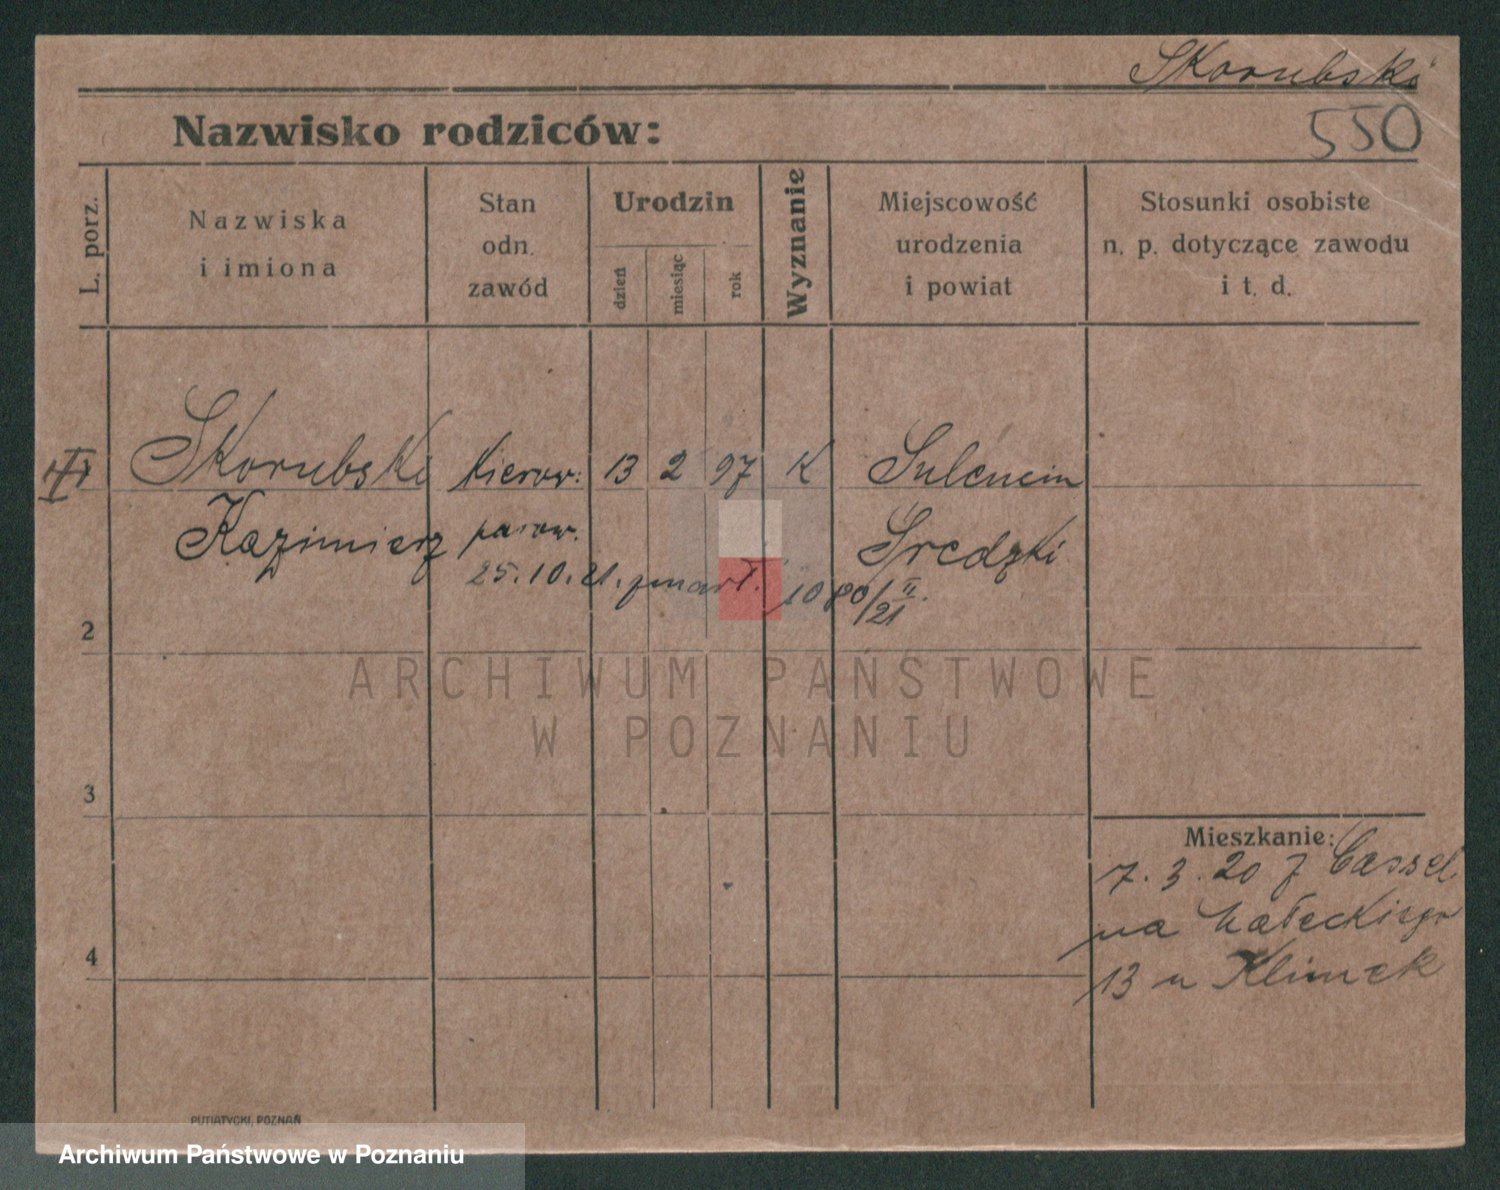 Skorubski
Nazwisko rodziców:
550
L. porz.
Nazwiska
i imiona
Stan
odn.
zawód
Urodzin
dzień
miesiąc
rok
Wyznanie
Miejscowość
urodzenia
i powiat
Stosunki osobiste
n. p. dotyczące zawodu
i t. d.
Skorubski kierow: 13 2 97 K Sulencin
Kazimierz parow. Sredzki
25.10.21. zmarł. 1080/21 II
2
3
4
ARCHIWUM PAŃSTWOWE
W POZNANIU
Mieszkanie:
7.3.20 z Cassel
na Małeckiego
13 u Klimek
PUTIATYCKI, POZNAŃ
Archiwum Państwowe w Poznaniu